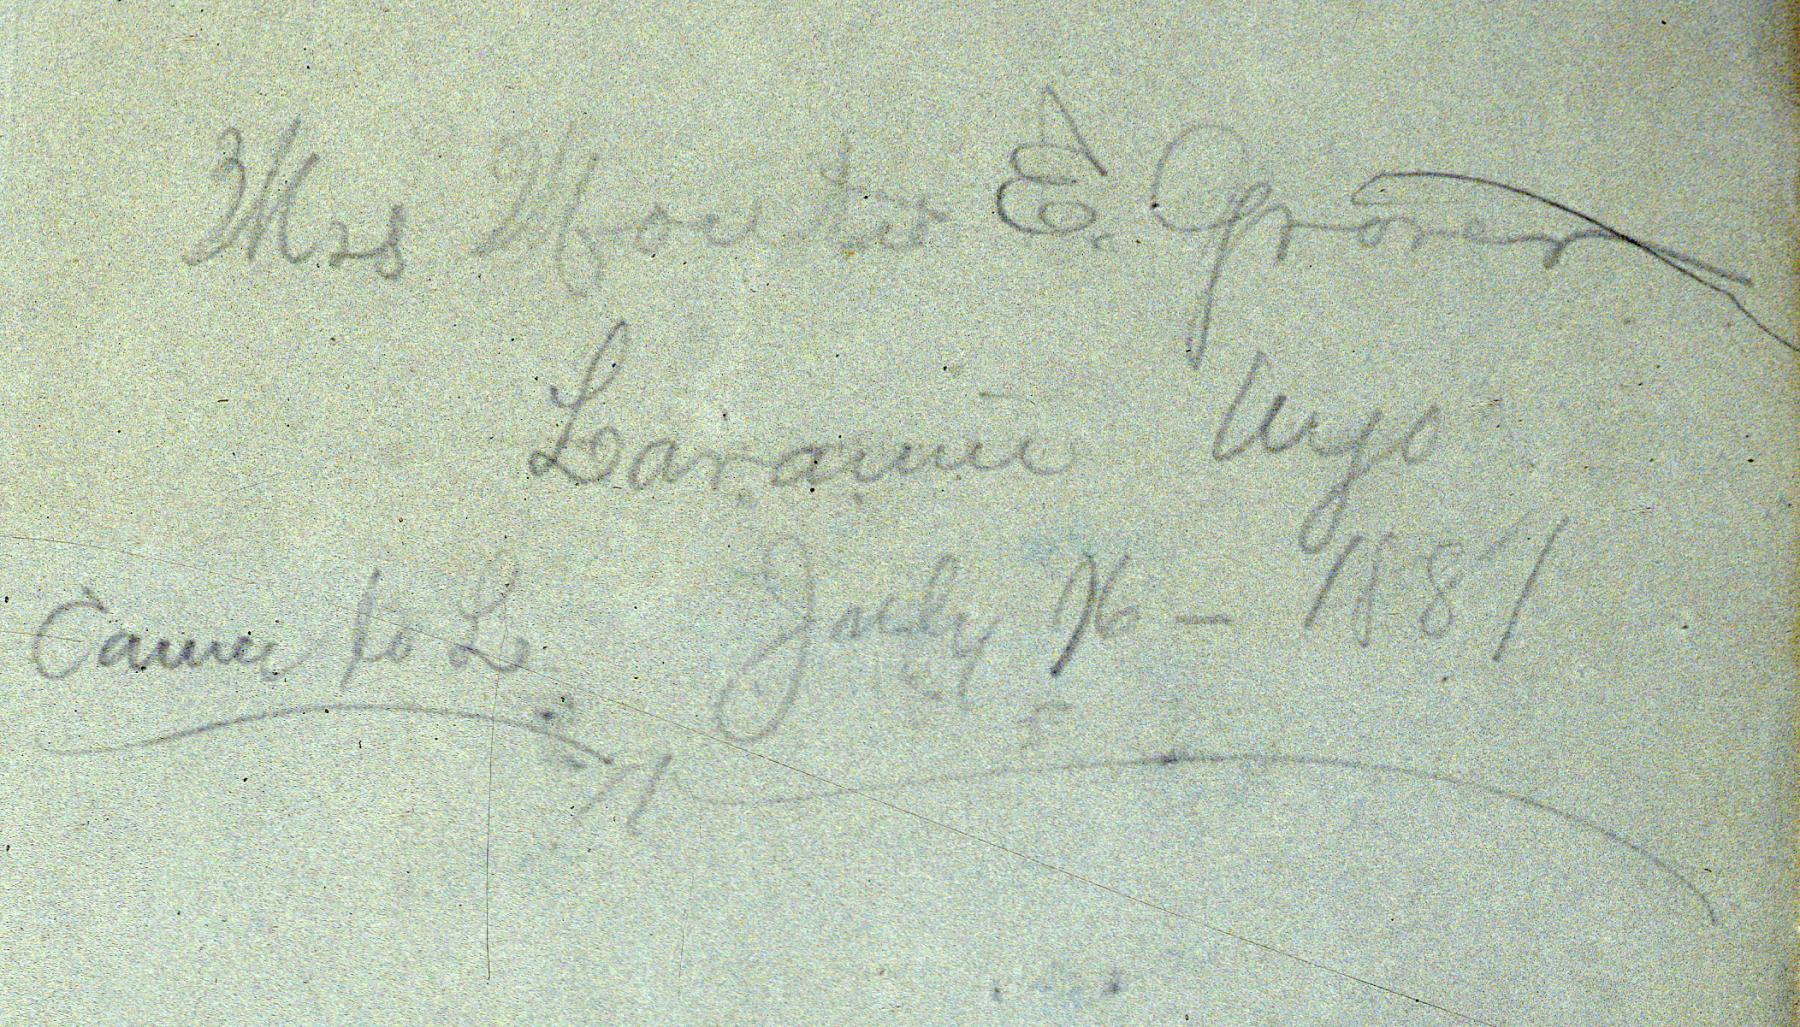 Mrs E. Grover
Laramie Wyo
Came to L. July 16 - 1887